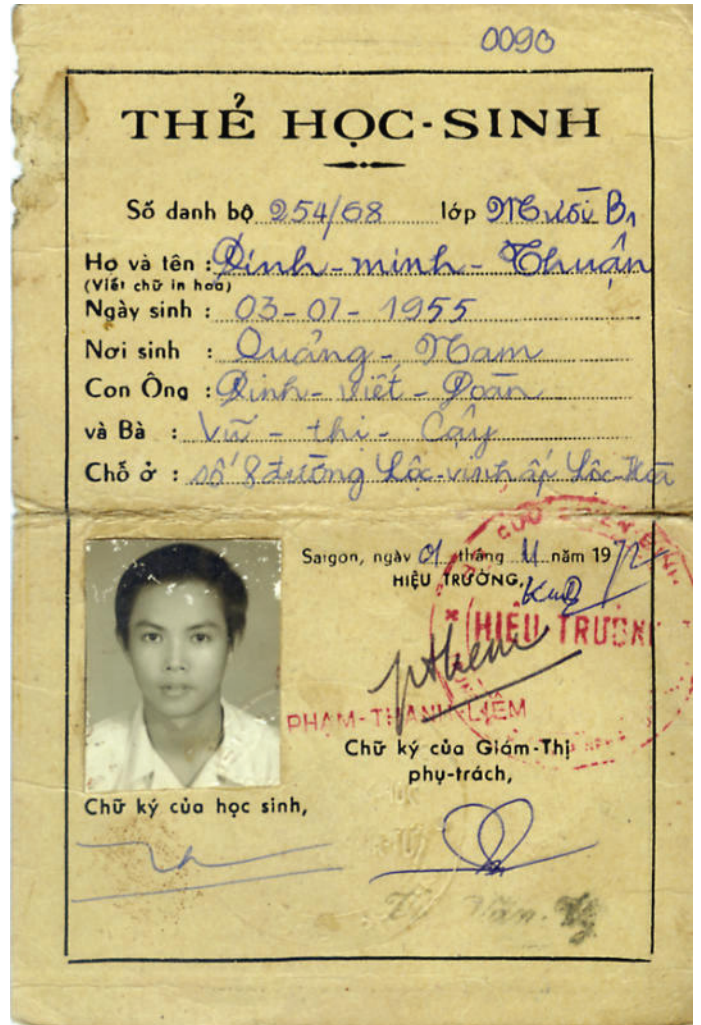 0090
THẺ HỌC-SINH
Số danh bộ 254/68 lớp Mười B1
Họ và tên : Đinh - minh - Thuận
(Viết chữ in hoa)
Ngày sinh : 03 - 07 - 1955
Nơi sinh : Quảng - Nam
Con Ông : Đinh - viết - Đoàn
và Bà : Vũ - thị - Cậy
Chỗ ở : số 8 đường Lộc-vinh ấp Lộc-Hoà
Saigon, ngày 01 tháng 11 năm 1972
HIỆU TRƯỞNG,
HIỆU TRƯỞNG
PHẠM-THANH-LIÊM
Chữ ký của Giám-Thị
phụ-trách,
Chữ ký của học sinh,